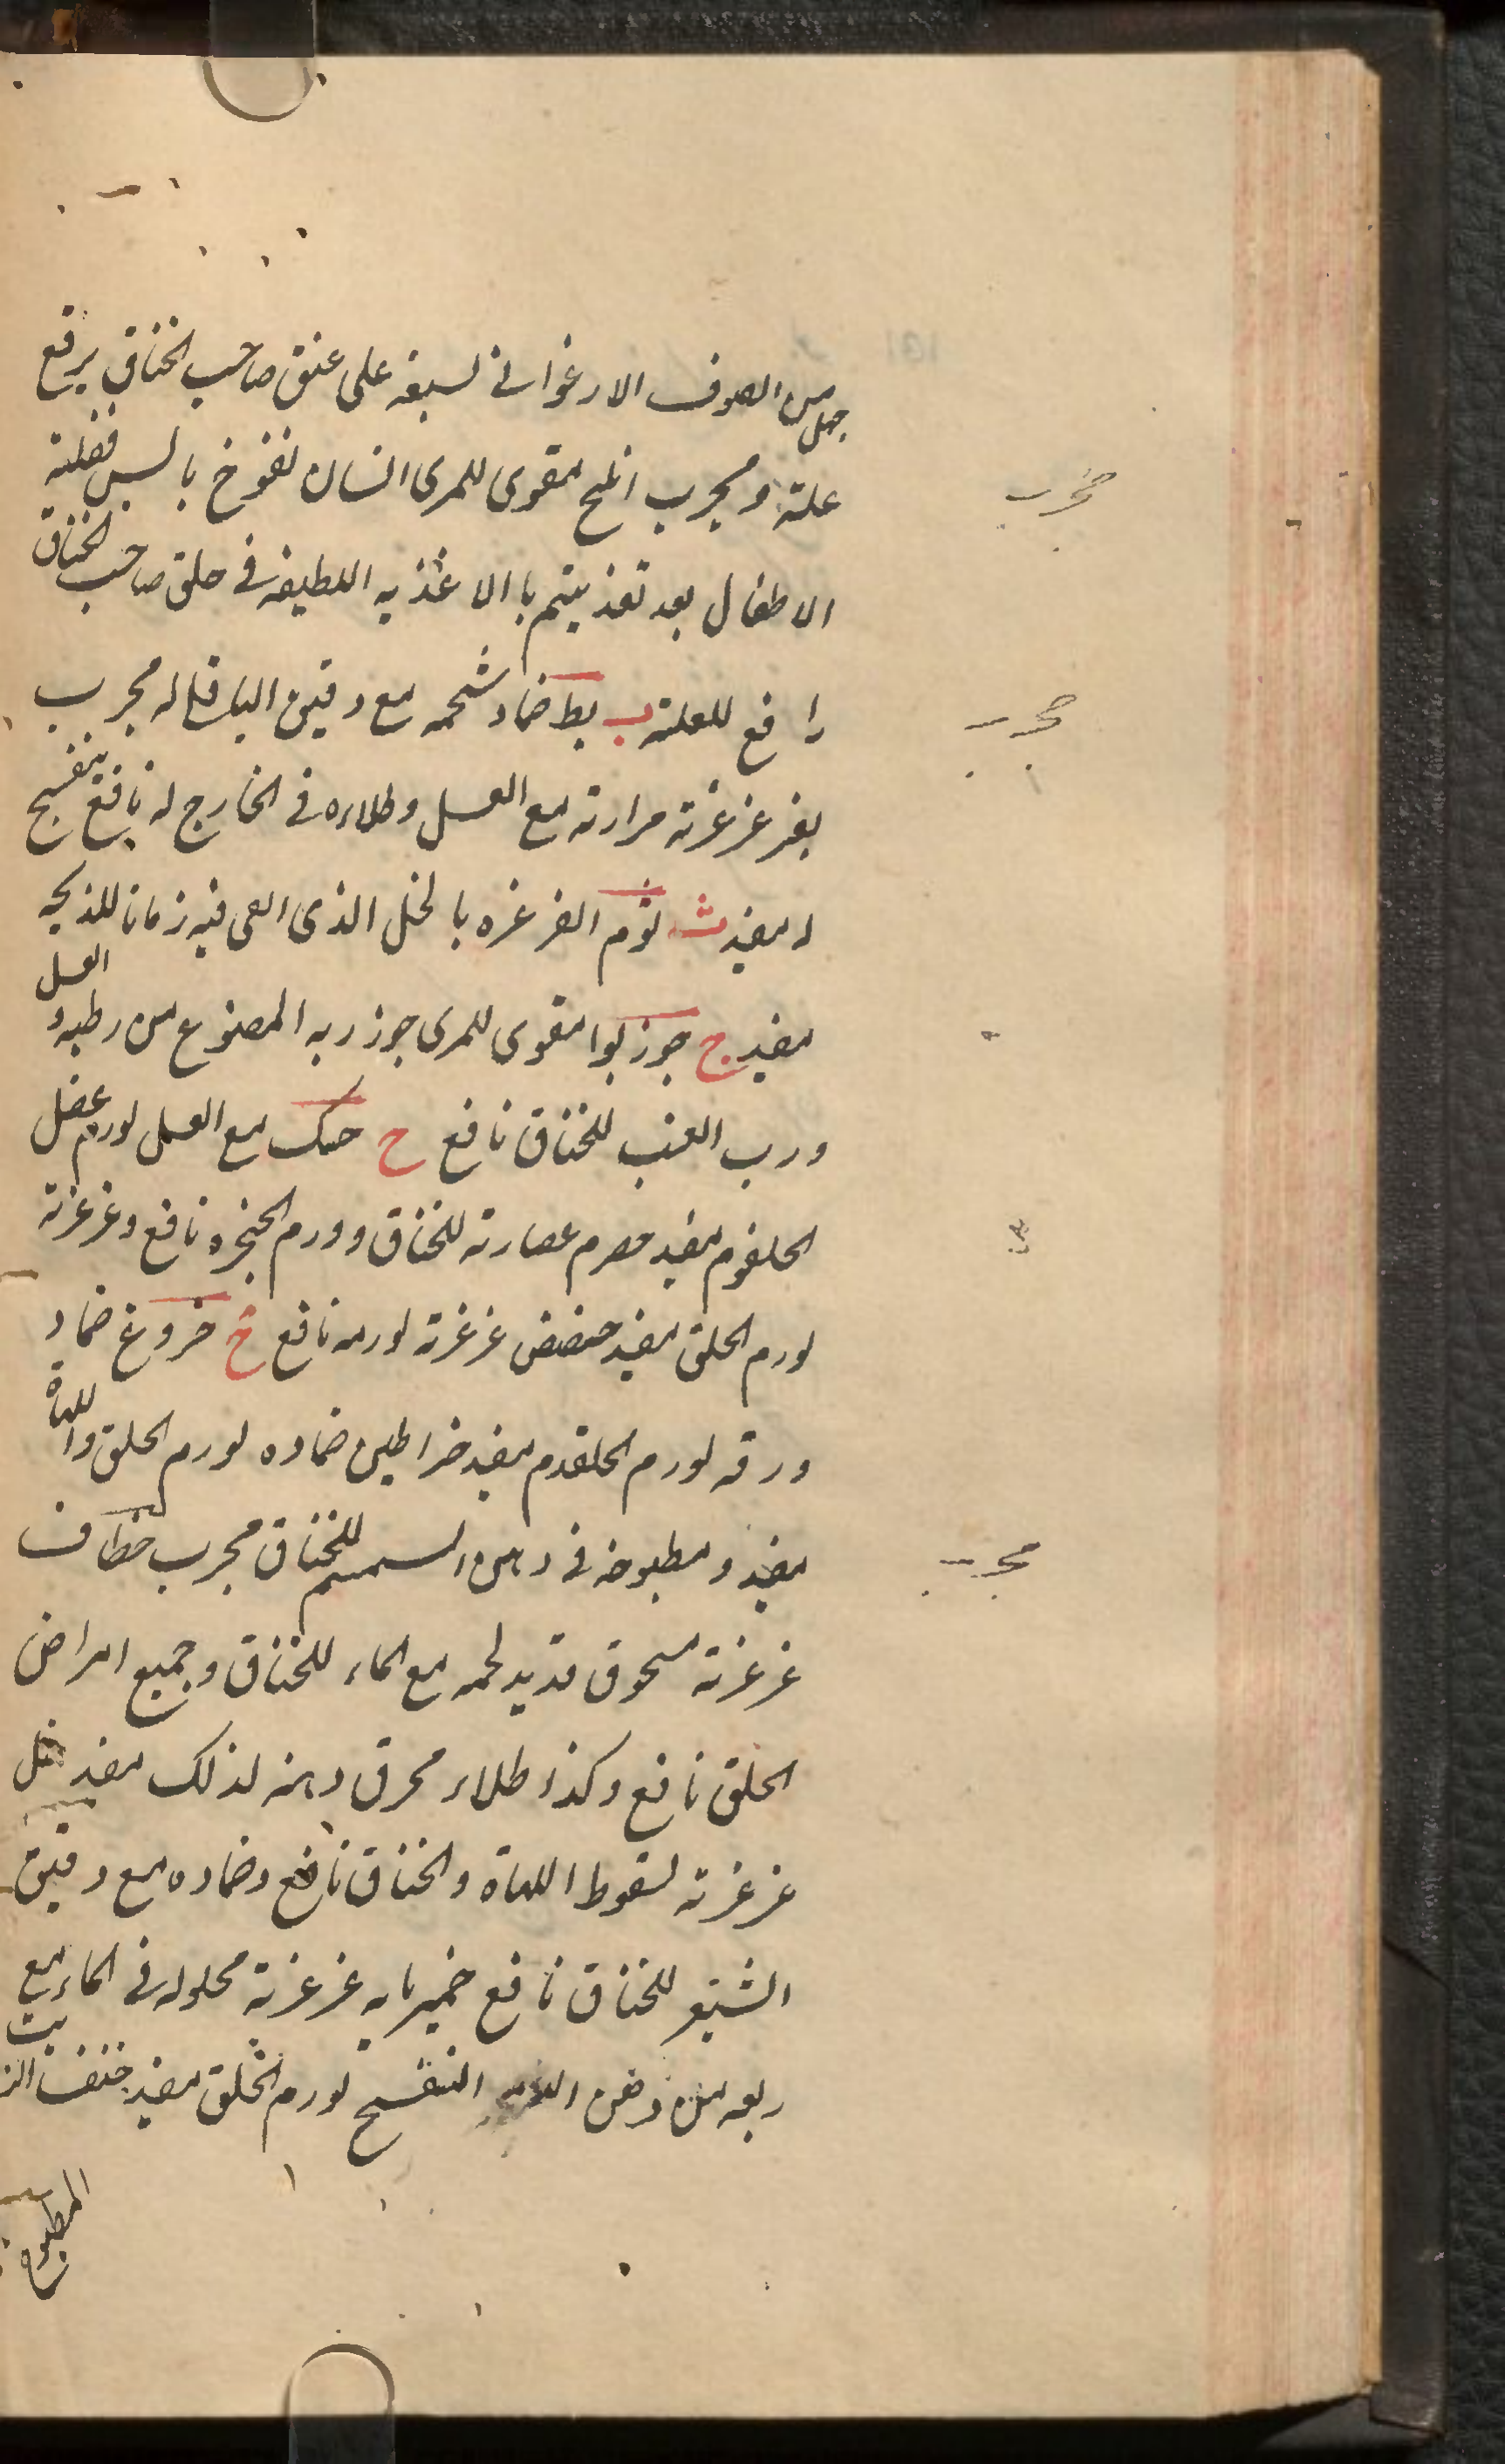 جعل من الصوف الارغوانی لسبعه علی عنق صاحب الخناق یرفع
علته و مجرب املج مقوی للمری انسان نفوخ یابس فضلته
الاطفال بعد تغذیتهم باالاغذیه اللطیفه فی حلق صاحب الخناق
رافع للعلته ب بط ضماد شحمه مع دقیق الباقلا له مجرب
بقر غرغرته مرارته مع العسل وطلاءه فی الخارج له نافع بنفسج
له مفید ث ثوم الغرغره بالخل الذی القی فیه زمانا للذبحه
مفید ج جوز بوا مقوی للمری جوز ربه المصنوع من رطبه و العسل
ورب العنب للخناق نافع ح حسک مع العسل لورم عضل
الحلقوم مفید حصرم عصارته للخناق وورم الحنجره نافع وغرغرته
لورم الحلق مفید حضض غرغرته لورمه نافع خ خروع ضماد
ورقه لورم الحلقوم مفید خراطین ضماده لورم الحلق واللهاة
مفید و مطبوخه فی دهن السمسم للخناق مجرب خطاف
غرغرته مسحوق قدید لحمه مع الماء للخناق وجمیع امراض
الحلق نافع وکذا طلاء محرق دهنه لذلک مفید خل
غرغرته لسقوط اللهاة والخناق نافع وضماده مع دقیق
الشیعر للخناق نافع خمیرمایه غرغرته محلوله فی الماء مع
ربعه من دهن البنفسج لورم الحلق مفید خنفسا الزیت
المطبوخ
مجرب
مجرب
مجرب